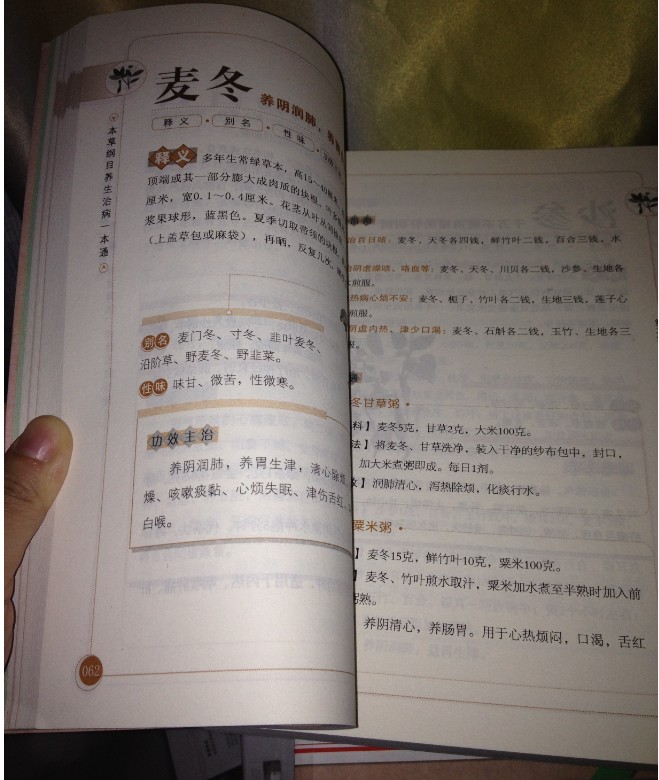 麦冬
养阴润肺，
释义 别名 性味
本草纲目养生治病一本通
释义 多年生常绿草本，高15～40
顶端或其一部分膨大成肉质的块根，
厘米，宽0.1～0.4厘米。花茎从叶
浆果球形，蓝黑色。夏季切取带须的块根，
（上盖草包或麻袋），再晒，反复几次，
别名 麦门冬、寸冬、韭叶麦冬、
沿阶草、野麦冬、野韭菜。
性味 味甘、微苦，性微寒。
功效主治
养阴润肺，养胃生津，清心除烦
燥、咳嗽痰黏、心烦失眠、津伤舌红、
白喉。
062
治百日咳：麦冬，天冬各四钱，鲜竹叶二钱，百合三钱，水
阴虚燥咳、咯血等：麦冬、天冬、川贝各二钱，沙参、生地各
煎服。
热病心烦不安：麦冬、栀子、竹叶各二钱，生地三钱，莲子心
煎服。
阴虚内热，津少口渴：麦冬、石斛各二钱，玉竹、生地各三
服。
冬甘草粥
料】麦冬5克，甘草2克，大米100克。
法】将麦冬、甘草洗净，装入干净的纱布包中，封口，
加大米煮粥即成。每日1剂。
效】润肺清心，泻热除烦，化痰行水。
粟米粥
】麦冬15克，鲜竹叶10克，粟米100克。
】麦冬、竹叶煎水取汁，粟米加水煮至半熟时加入前
粥熟。
养阴清心，养肠胃。用于心热烦闷，口渴，舌红